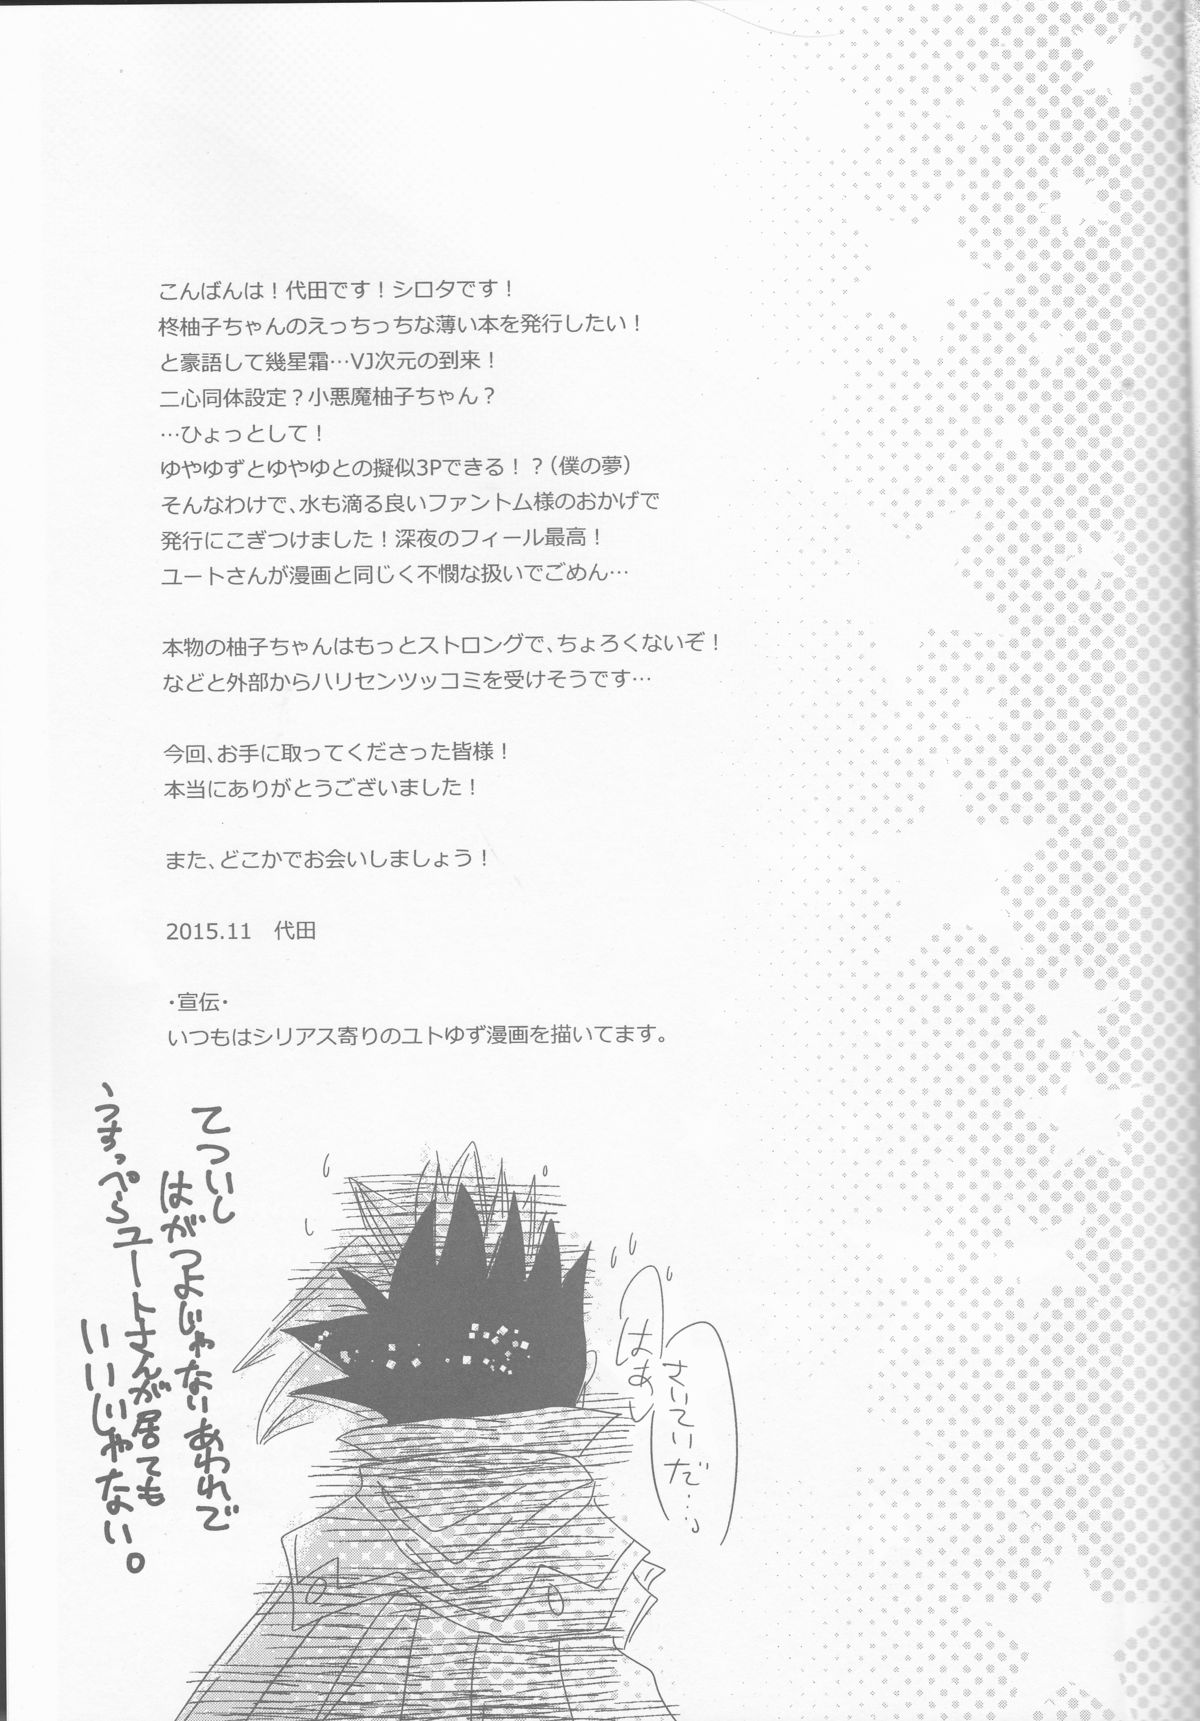 こんばんは！代田です！シロタです！
柊柚子ちゃんのえっちっちな薄い本を発行したい！
と豪語して幾星霜…VJ次元の到来！
二心同体設定？小悪魔柚子ちゃん？
…ひょっとして！
ゆやゆずとゆやゆとの擬似3Pできる！？（僕の夢）
そんなわけで、水も滴る良いファントム様のおかげで
発行にこぎつけました！深夜のフィール最高！
ユートさんが漫画と同じく不憫な扱いでごめん…
本物の柚子ちゃんはもっとストロングで、ちょろくないぞ！
などと外部からハリセンツッコミを受けそうです…
今回、お手に取ってくださった皆様！
本当にありがとうございました！
また、どこかでお会いしましょう！
2015.11　代田
・宣伝・
いつもはシリアス寄りのユトゆず漫画を描いてます。
てついし
はがつよじゃないあわれで
うすっぺらユートさんが居ても
いいじゃない。
はぁ
さいていだ…。